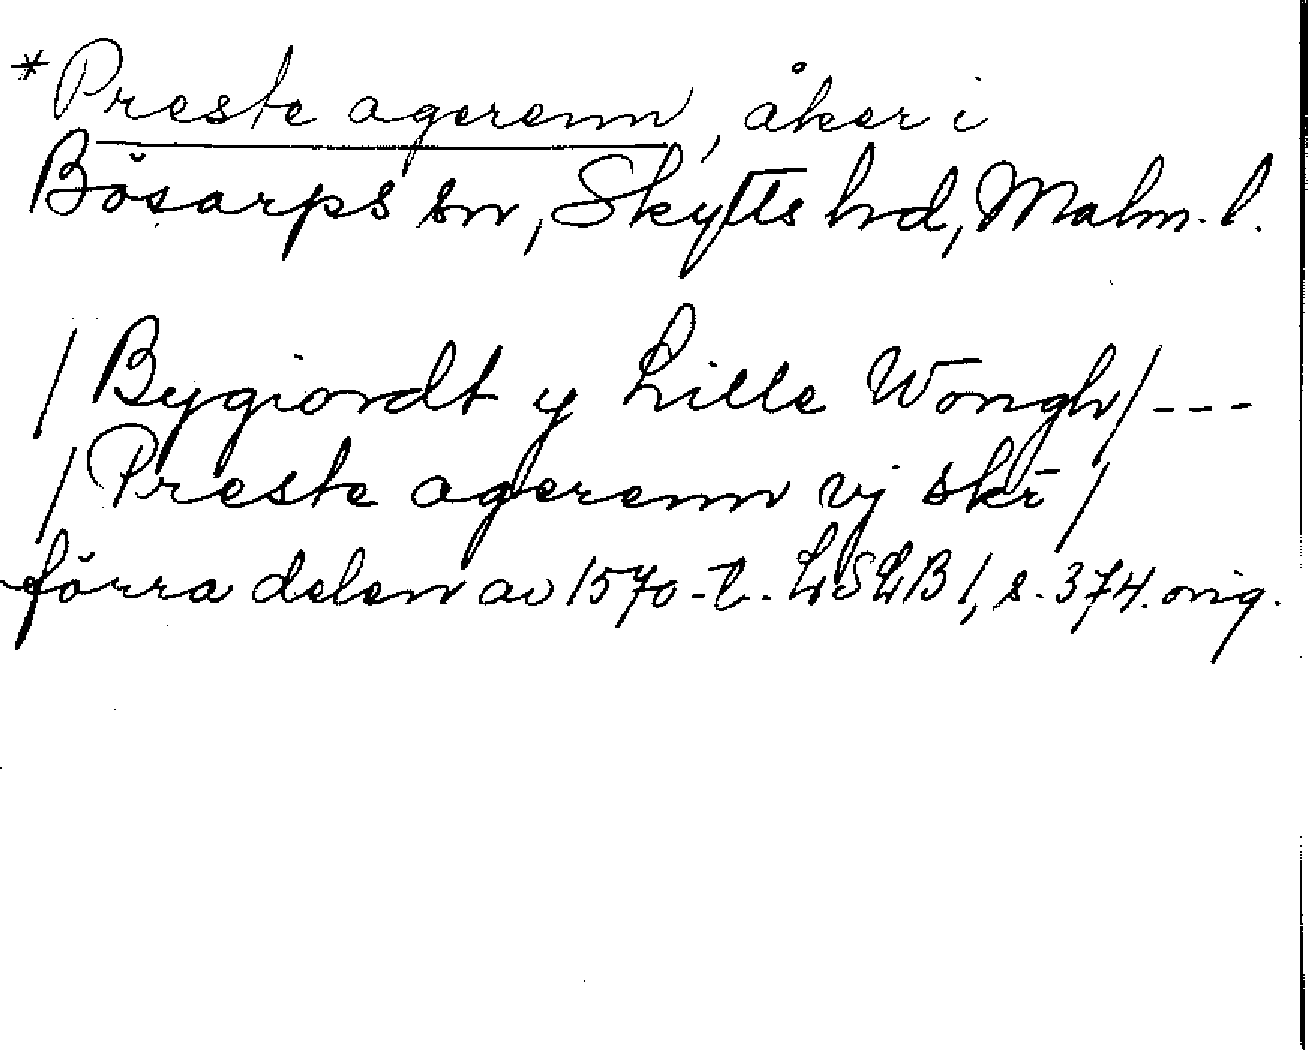 *Preste agerenn, åker i
Bösarps sn, Skytts hd, Malm. l.
/Bygiordt y Lille Wongh/---
/Preste agerenn vj skr̄/
förra delen av 1570-t. LSLB 1, s. 374. orig.